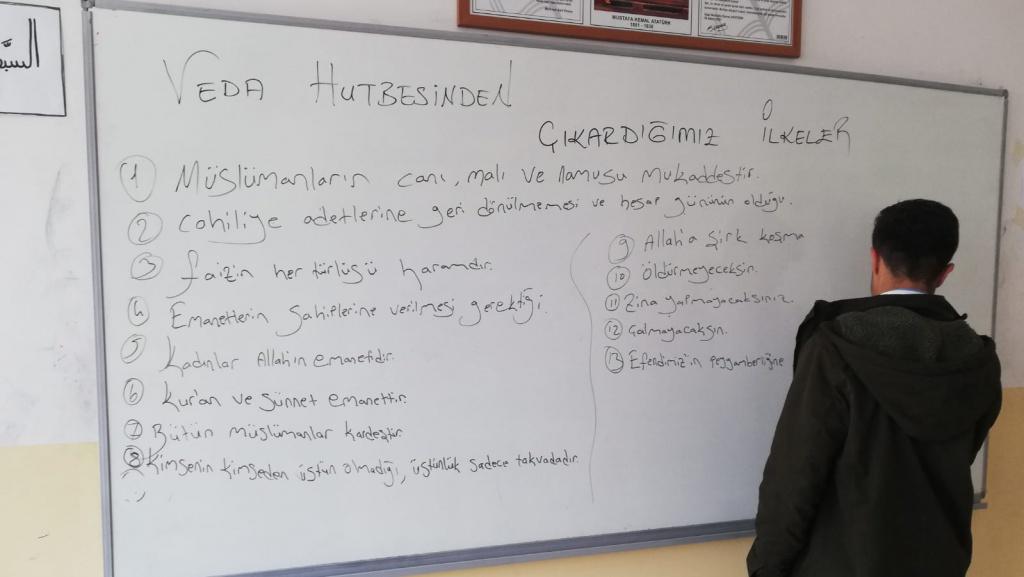 السبّ
MUSTAFA KEMAL ATATÜRK
1881 - 1938
VEDA HUTBESİNDEN
ÇIKARDIĞIMIZ İLKELER
1 Müslümanların canı, malı ve namusu mukaddestir.
2 Cahiliye adetlerine geri dönülmemesi ve hesap gününün olduğu.
3 faizin her türlüsü haramdır.
4 Emanetlerin sahiplerine verilmesi gerektiği.
5 Kadınlar Allah'ın emanetidir.
6 Kur'an ve sünnet emanettir.
7 Bütün müslümanlar kardeştir.
8 Kimsenin kimseden üstün olmadığı, üstünlük sadece takvadadır.
9 Allah'a şirk koşma
10 Öldürmeyeceksin.
11 Zina yapmayacaksınız.
12 Çalmayacaksın.
13 Efendimiz'in peygamberliğine